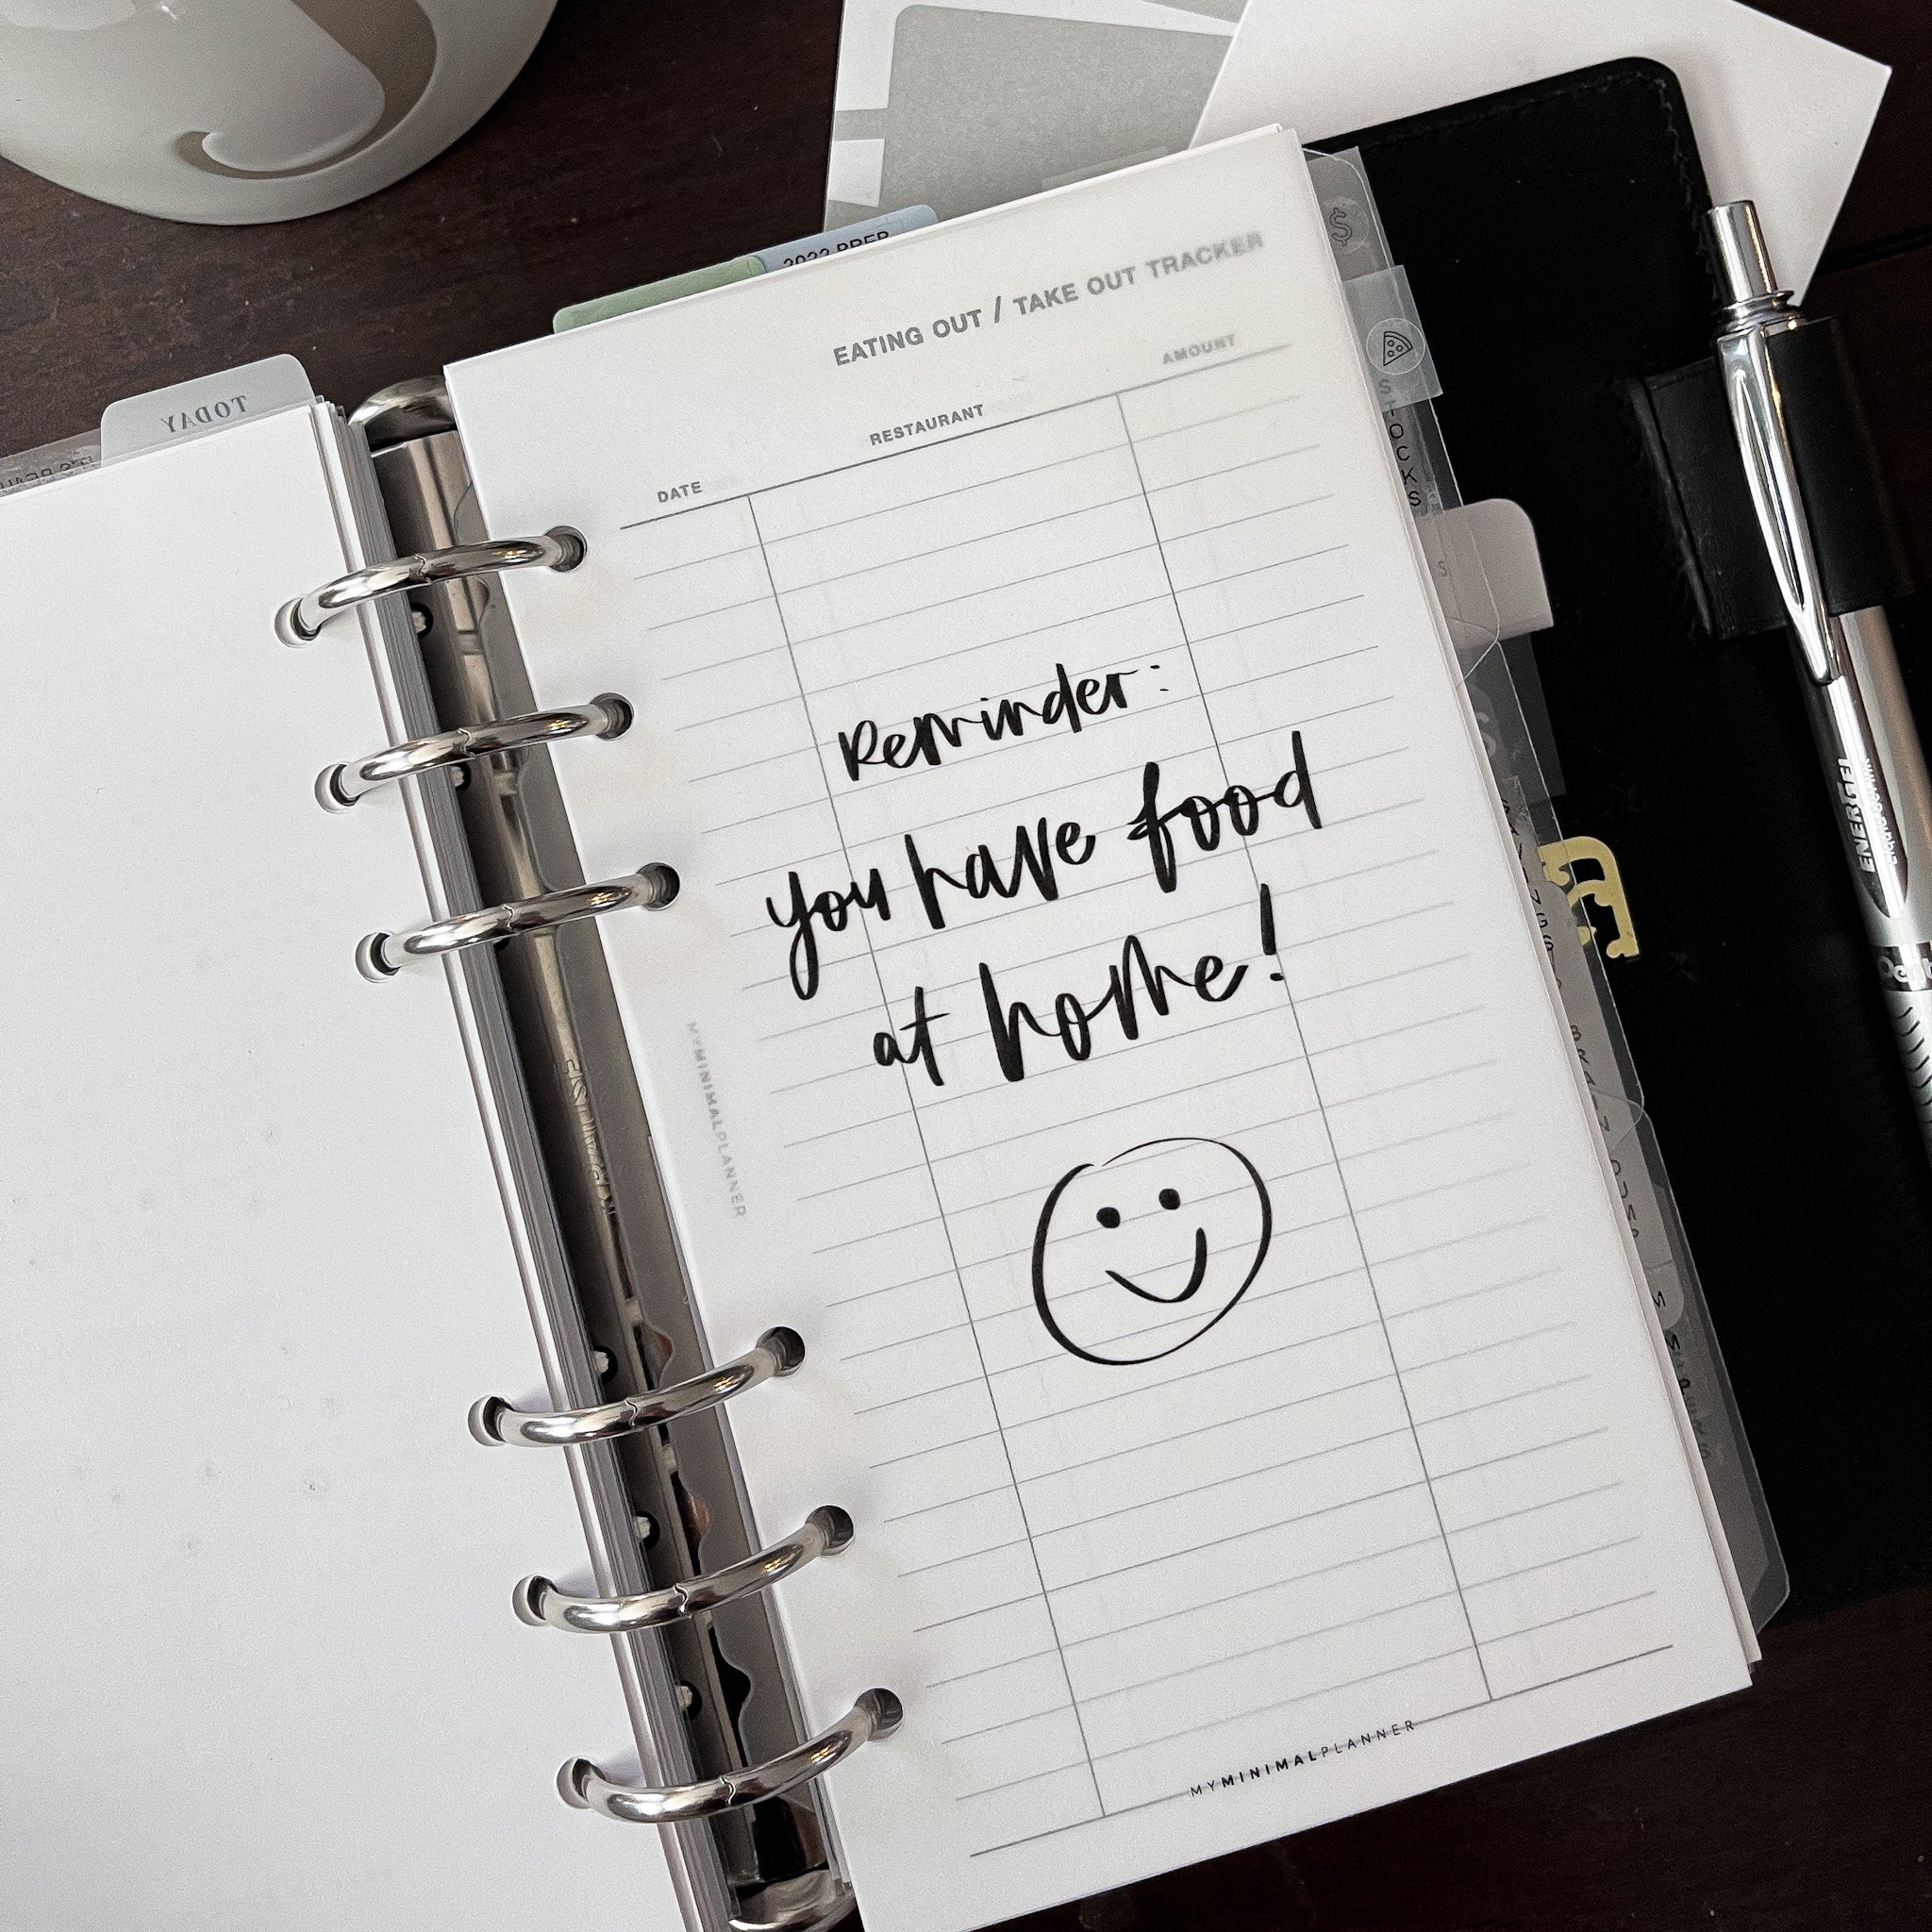 TODAY
2022 PREP
EATING OUT / TAKE OUT TRACKER
DATE
RESTAURANT
AMOUNT
$
STOCKS
Reminder:
you have food
at home!
MYMINIMALPLANNER
MYMINIMALPLANNER
ENERGEL